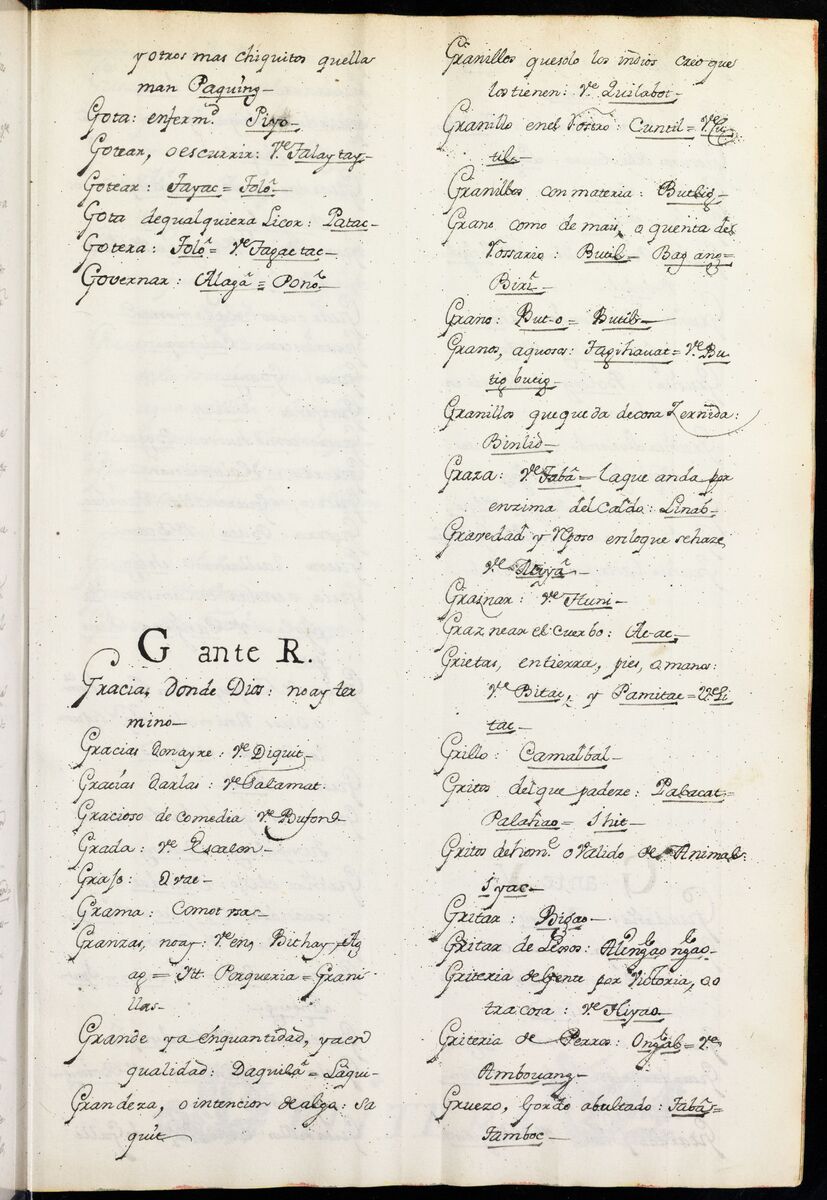 y otros mas chiquitos quella
man Paquing_
Gota: enferm.ᵈ Piyo_
Gotear, o escurrir: Vᵉ Talaytay_
Gotear: Tayac= Tolô_
Gota dequalquiera Licor: Patac_
Gotera: Tolô= Vᵉ Tagactac_
Governar: Alagâ= Ponô_
G ante R.
Gracia, donde Dios: no ay ter
mino_
Gracias donayre: Vᵉ Diquit_
Gracias darlas: Vᵉ Salamat.
Gracioso de comedia Vᵉ Bufon_
Grada: Vᵉ Escalon_
Graso:
Grama:
Granzas, no ay: Vᵉ en, Bithay, Ag
ag= Itt. Porqueria= Grani
llas_
Grande ya enquantidad, ya en
qualidad: Daquilâ= Laqui_
Grandeza, o intencion de algo: Sa
quit_
Granillos quesolo los indios creo que
los tienen: Vᵉ Quilabot_
Granillo enel Rostro: Cuntil= Vᵉ Cu
til_
Granillos con materia: Butlig_
Grano como de mair, o quenta del
Rossario: Butil_ Bag ang=
Birî_
Grano: But-o= Butil_
Granos, aquosos: Tagihauat= Vᵉ Bu
tig butig_
Granillos que queda de cosa Zernida:
Binlid_
Graza: Vᵉ Tabâ= la que anda por
enzima del Caldo: Linab_
Gravedad y Reposo enloque sehaze,
Vᵉ
Graznar: Vᵉ Huni_
Graznear el Cuerbo: Ac-ac_
Grietas, en tierra, pies, o manos:
Vᵉ Bitac, y Pamitac= Vᵉ Li
tac_
Grillo: Camalbal_
Gritos del que padeze: Pabacat=
Palahao= Ihit_
Gritos dehomᵉ o Valido de Animal:
Iyac_
Gritar: Bigao_
Gritar de Lexos: Alingao ngao_
Griteria de gente por Victoria, o o
tra cosa: Vᵉ Hiyao_
Griteria de Perros: Ongal= Vᵉ
Ambouang_
Gruezo, Gordo abultado: Tabâ=
Tamboc_